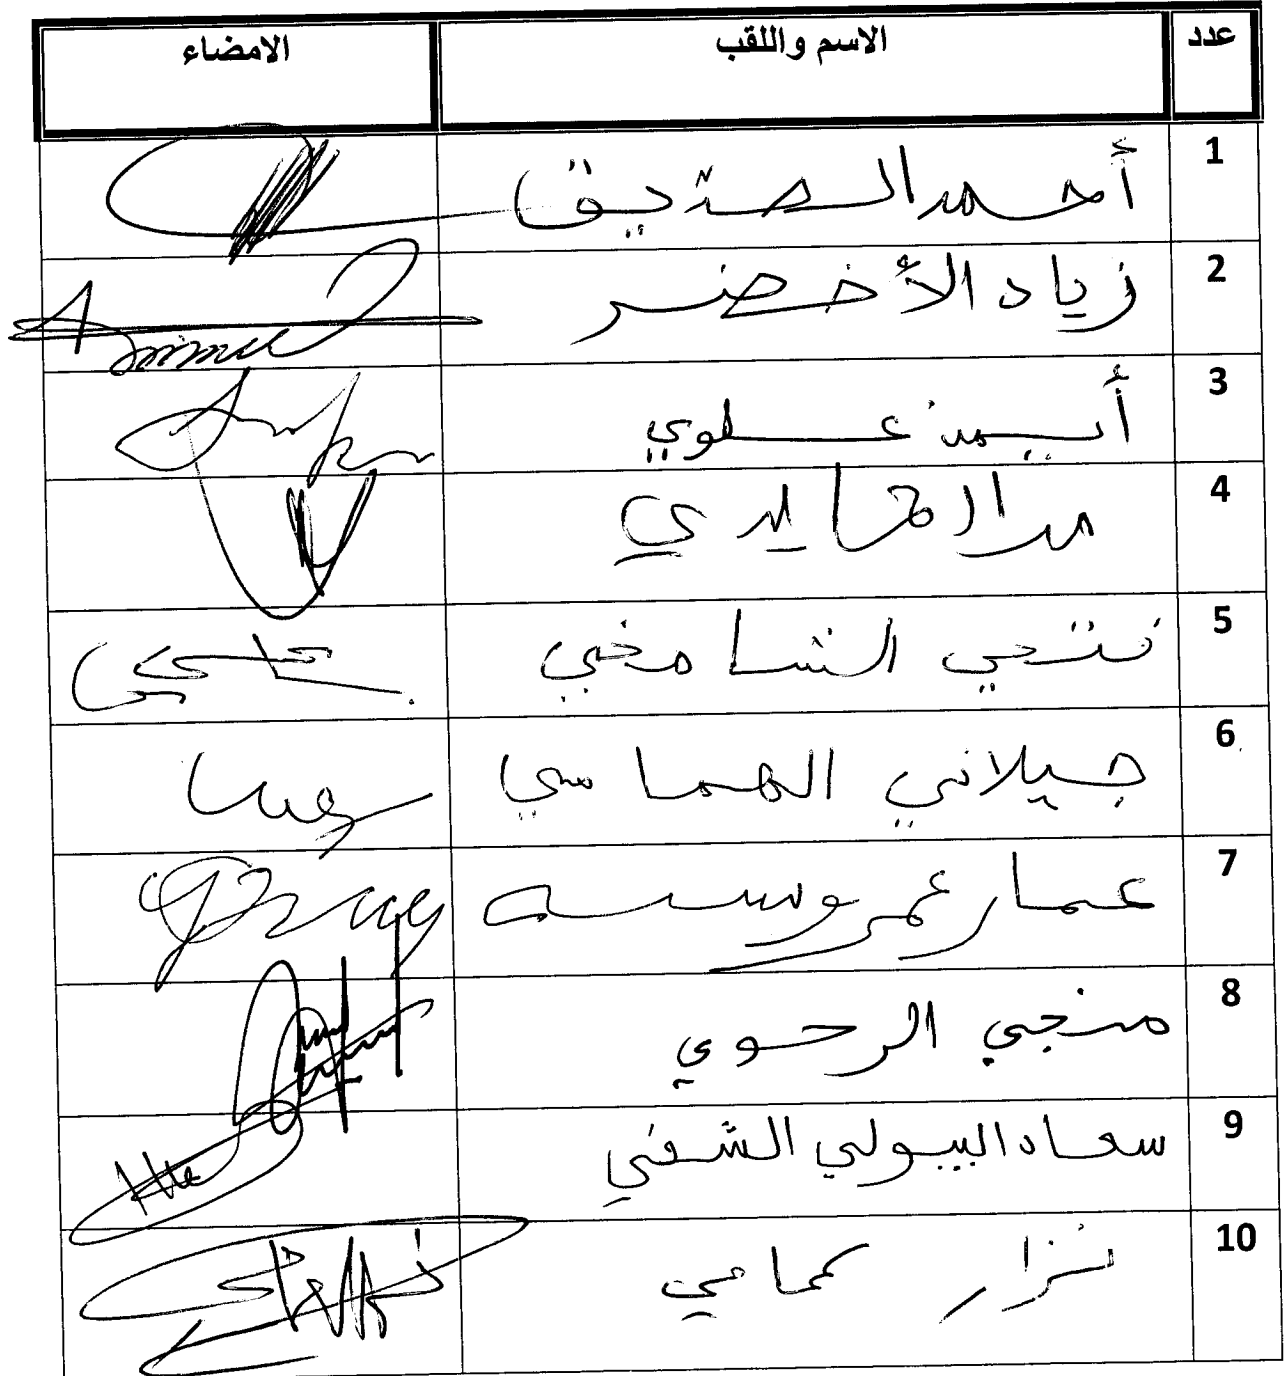 عدد الاسم واللقب الامضاء
1 أحمد الصديق
2 زياد الأخضر
3 أيمن علوي
4 مراد الحمايدي
5 فتحي الشامخي
6 جيلاني الهمامي
7 عمار عمروسية
8 منجي الرحوي
9 سعاد البيولي الشفي
10 نزار عمامي